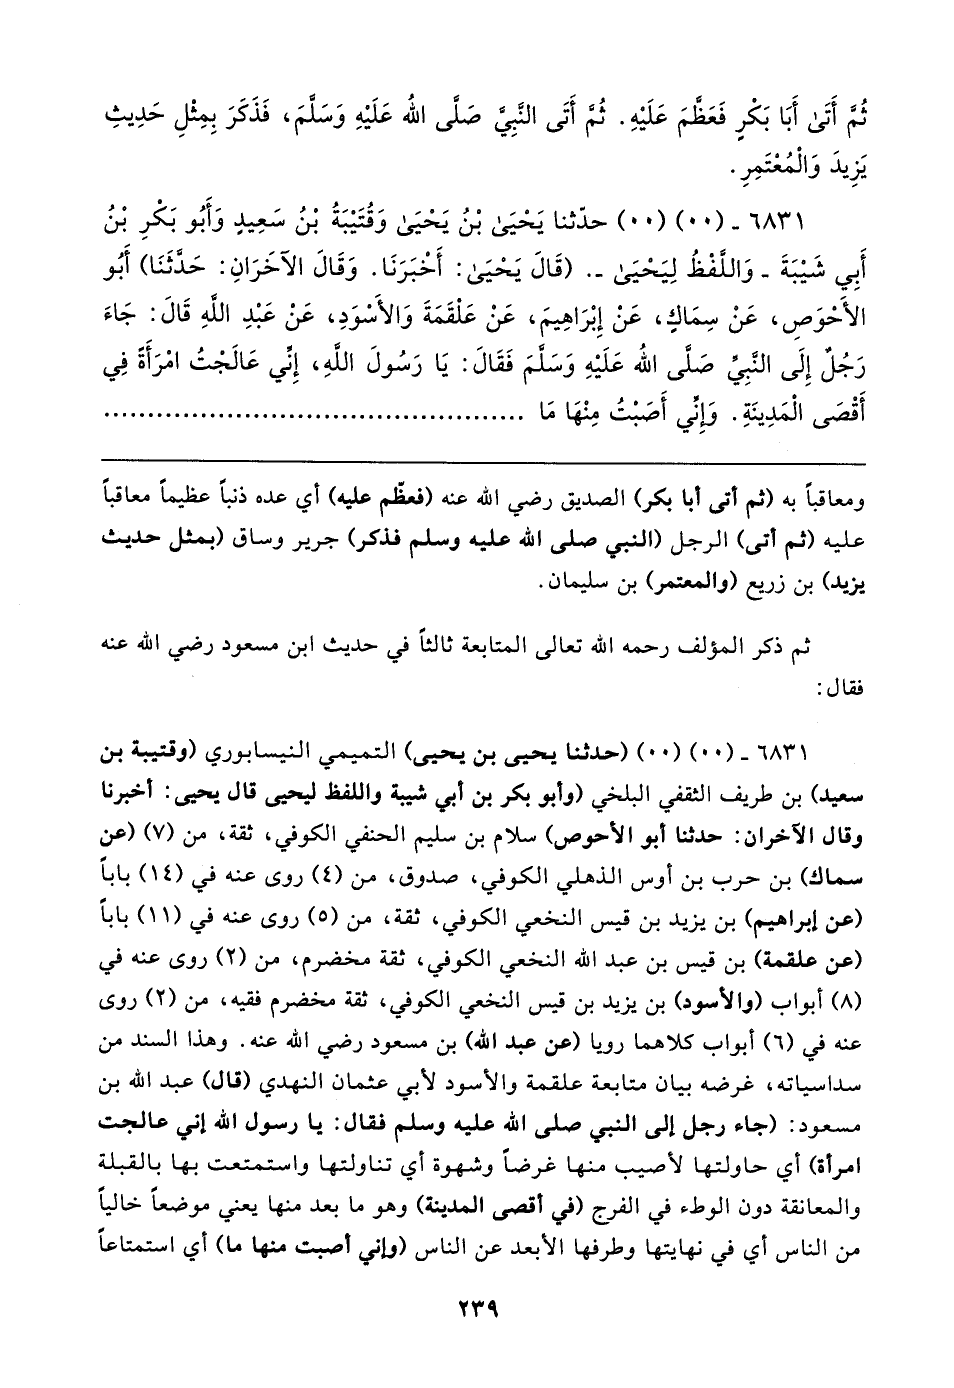 ثُمَّ أَتَىٰ أَبَا بَكْرٍ فَعَظَّمَ عَلَيْهِ. ثُمَّ أَتَى النَّبِيَّ صَلَّى اللهُ عَلَيْهِ وَسَلَّمَ، فَذَكَرَ بِمِثْلِ حَدِيثِ
يَزِيدَ وَالْمُعْتَمِرِ.
٦٨٣١ ـ (٠٠) (٠٠) حدّثنا يَحْيَىٰ بْنُ يَحْيَىٰ وَقُتَيْبَةُ بْنُ سَعِيدٍ وَأَبُو بَكْرِ بْنُ
أَبِي شَيْبَةَ ـ وَاللَّفْظُ لِيَحْيَىٰ ـ. (قَالَ يَحْيَىٰ: أَخْبَرَنَا. وَقَالَ الآخَرَانِ: حَدَّثَنَا) أَبُو
الأَحْوَصِ، عَنْ سِمَاكٍ، عَنْ إِبْرَاهِيمَ، عَنْ عَلْقَمَةَ وَالأَسْوَدِ، عَنْ عَبْدِ اللَّهِ قَالَ: جَاءَ
رَجُلٌ إِلَى النَّبِيِّ صَلَّى اللهُ عَلَيْهِ وَسَلَّمَ فَقَالَ: يَا رَسُولَ اللَّهِ، إِنِّي عَالَجْتُ امْرَأَةً فِي
أَقْصَى الْمَدِينَةِ. وَإِنِّي أَصَبْتُ مِنْهَا مَا ..............................................
ومعاقباً به (ثم أتى أبا بكر) الصديق رضي الله عنه (فعظّم عليه) أي عده ذنباً عظيماً معاقباً
عليه (ثم أتى) الرجل (النبي صلى الله عليه وسلم فذكر) جرير وساق (بمثل حديث
يزيد) بن زريع (والمعتمر) بن سليمان.
ثم ذكر المؤلف رحمه الله تعالى المتابعة ثالثاً في حديث ابن مسعود رضي الله عنه
فقال:
٦٨٣١ ـ (٠٠) (٠٠) (حدثنا يحيى بن يحيى) التميمي النيسابوري (وقتيبة بن
سعيد) بن طريف الثقفي البلخي (وأبو بكر بن أبي شيبة واللفظ ليحيى قال يحيى: أخبرنا
وقال الآخران: حدثنا أبو الأحوص) سلام بن سليم الحنفي الكوفي، ثقة، من (٧) (عن
سماك) بن حرب بن أوس الذهلي الكوفي، صدوق، من (٤) روى عنه في (١٤) باباً
(عن إبراهيم) بن يزيد بن قيس النخعي الكوفي، ثقة، من (٥) روى عنه في (١١) باباً
(عن علقمة) بن قيس بن عبد الله النخعي الكوفي، ثقة مخضرم، من (٢) روى عنه في
(٨) أبواب (والأسود) بن يزيد بن قيس النخعي الكوفي، ثقة مخضرم فقيه، من (٢) روى
عنه في (٦) أبواب كلاهما رويا (عن عبد الله) بن مسعود رضي الله عنه. وهذا السند من
سداسياته، غرضه بيان متابعة علقمة والأسود لأبي عثمان النهدي (قال) عبد الله بن
مسعود: (جاء رجل إلى النبي صلى الله عليه وسلم فقال: يا رسول الله إني عالجت
امرأة) أي حاولتها لأصيب منها غرضاً وشهوة أي تناولتها واستمتعت بها بالقبلة
والمعانقة دون الوطء في الفرج (في أقصى المدينة) وهو ما بعد منها يعني موضعاً خالياً
من الناس أي في نهايتها وطرفها الأبعد عن الناس (وإني أصبت منها ما) أي استمتاعاً
٢٣٩